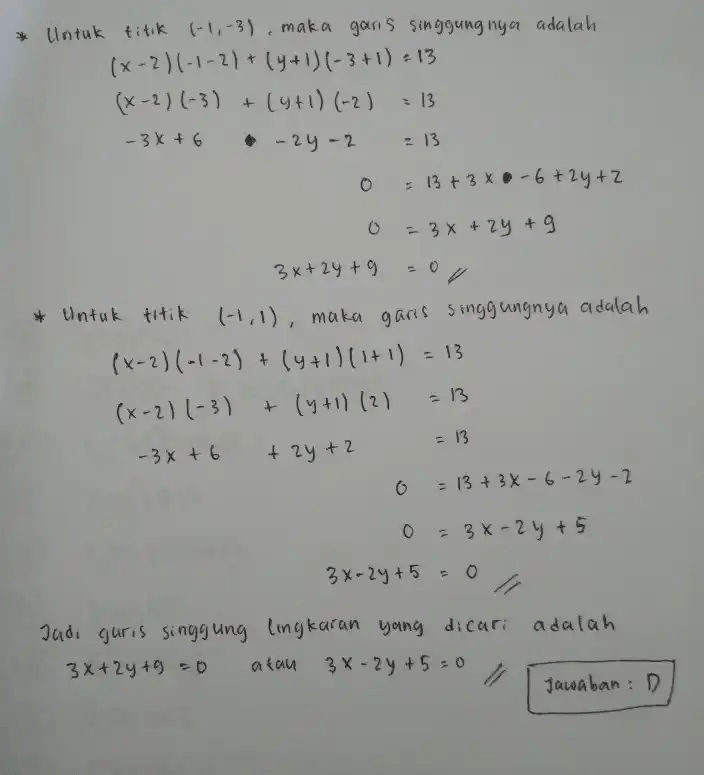 * Untuk titik (-1,-3), maka garis singgungnya adalah
(x-2)(-1-2) + (y+1)(-3+1) = 13
(x-2)(-3) + (y+1)(-2) = 13
-3x + 6 - 2y - 2 = 13
0 = 13 + 3x - 6 + 2y + 2
0 = 3x + 2y + 9
3x + 2y + 9 = 0 //
* Untuk titik (-1,1), maka garis singgungnya adalah
(x-2)(-1-2) + (y+1)(1+1) = 13
(x-2)(-3) + (y+1)(2) = 13
-3x + 6 + 2y + 2 = 13
0 = 13 + 3x - 6 - 2y - 2
0 = 3x - 2y + 5
3x - 2y + 5 = 0 //
Jadi garis singgung lingkaran yang dicari adalah
3x + 2y + 9 = 0 atau 3x - 2y + 5 = 0 //
Jawaban : D